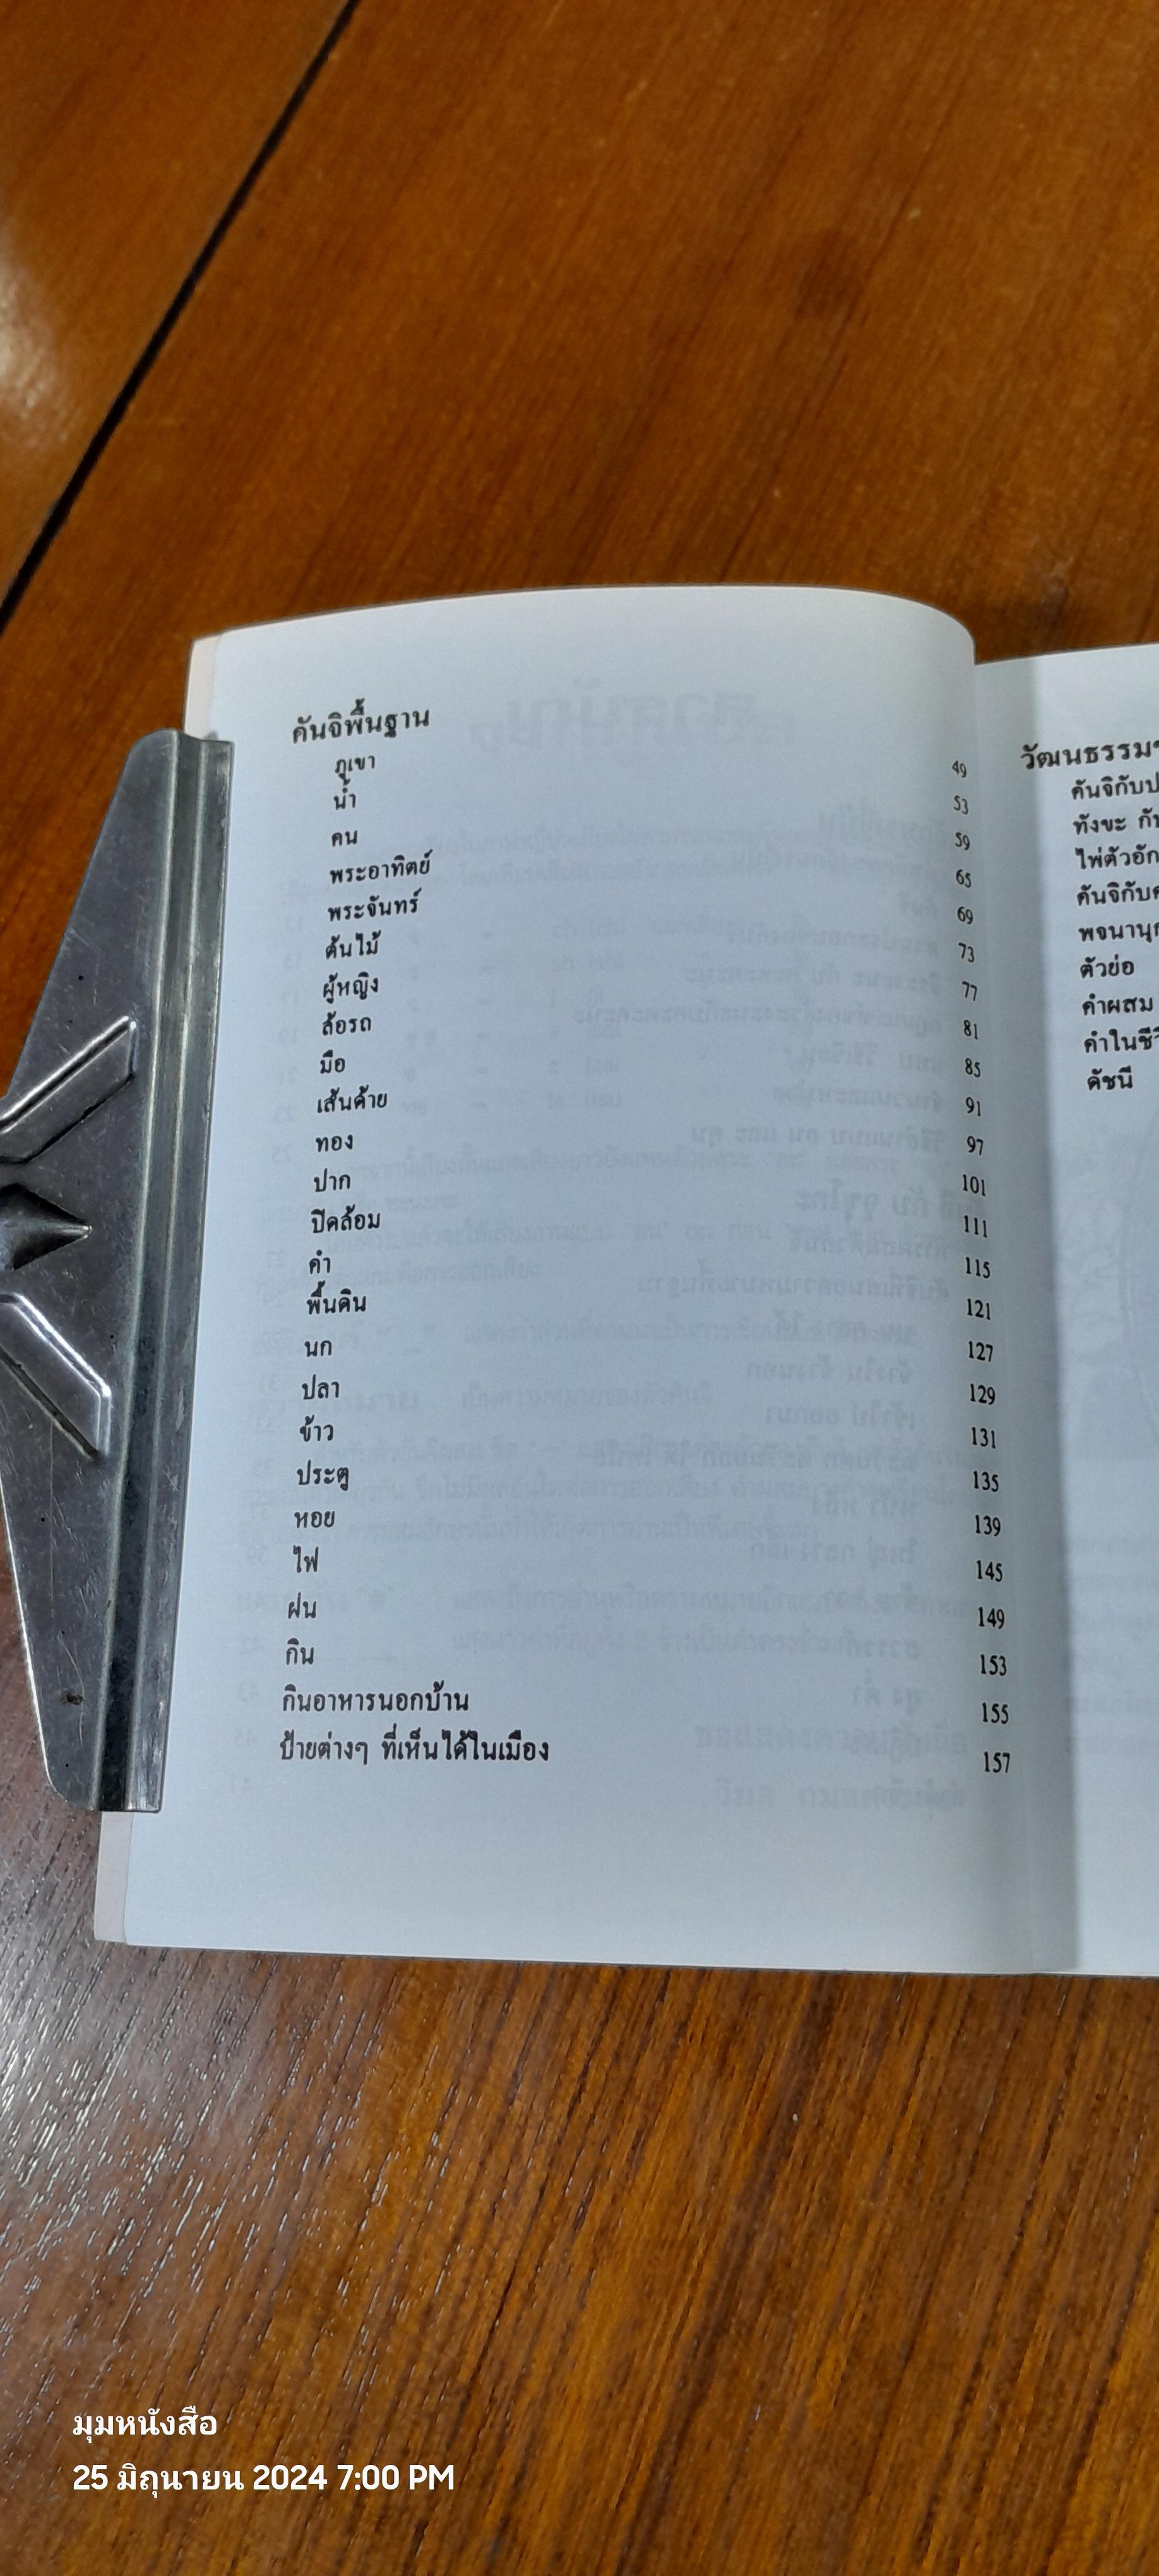 คันจิพื้นฐาน
ภูเขา 49
น้ำ 53
คน 59
พระอาทิตย์ 65
พระจันทร์ 69
ต้นไม้ 73
ผู้หญิง 77
ล้อรถ 81
มือ 85
เส้นด้าย 91
ทอง 97
ปาก 101
ปิดล้อม 111
คำ 115
พื้นดิน 121
นก 127
ปลา 129
ข้าว 131
ประตู 135
หอย 139
ไฟ 145
ฝน 149
กิน 153
กินอาหารนอกบ้าน 155
ป้ายต่างๆ ที่เห็นได้ในเมือง 157
วัฒนธรรม
คันจิกับ
ทังขะ
ไพ่ตัวอัก
คันจิกับ
พจนานุก
ตัวย่อ
คำผสม
คำในชี
ดัชนี
มุมหนังสือ
25 มิถุนายน 2024 7:00 PM